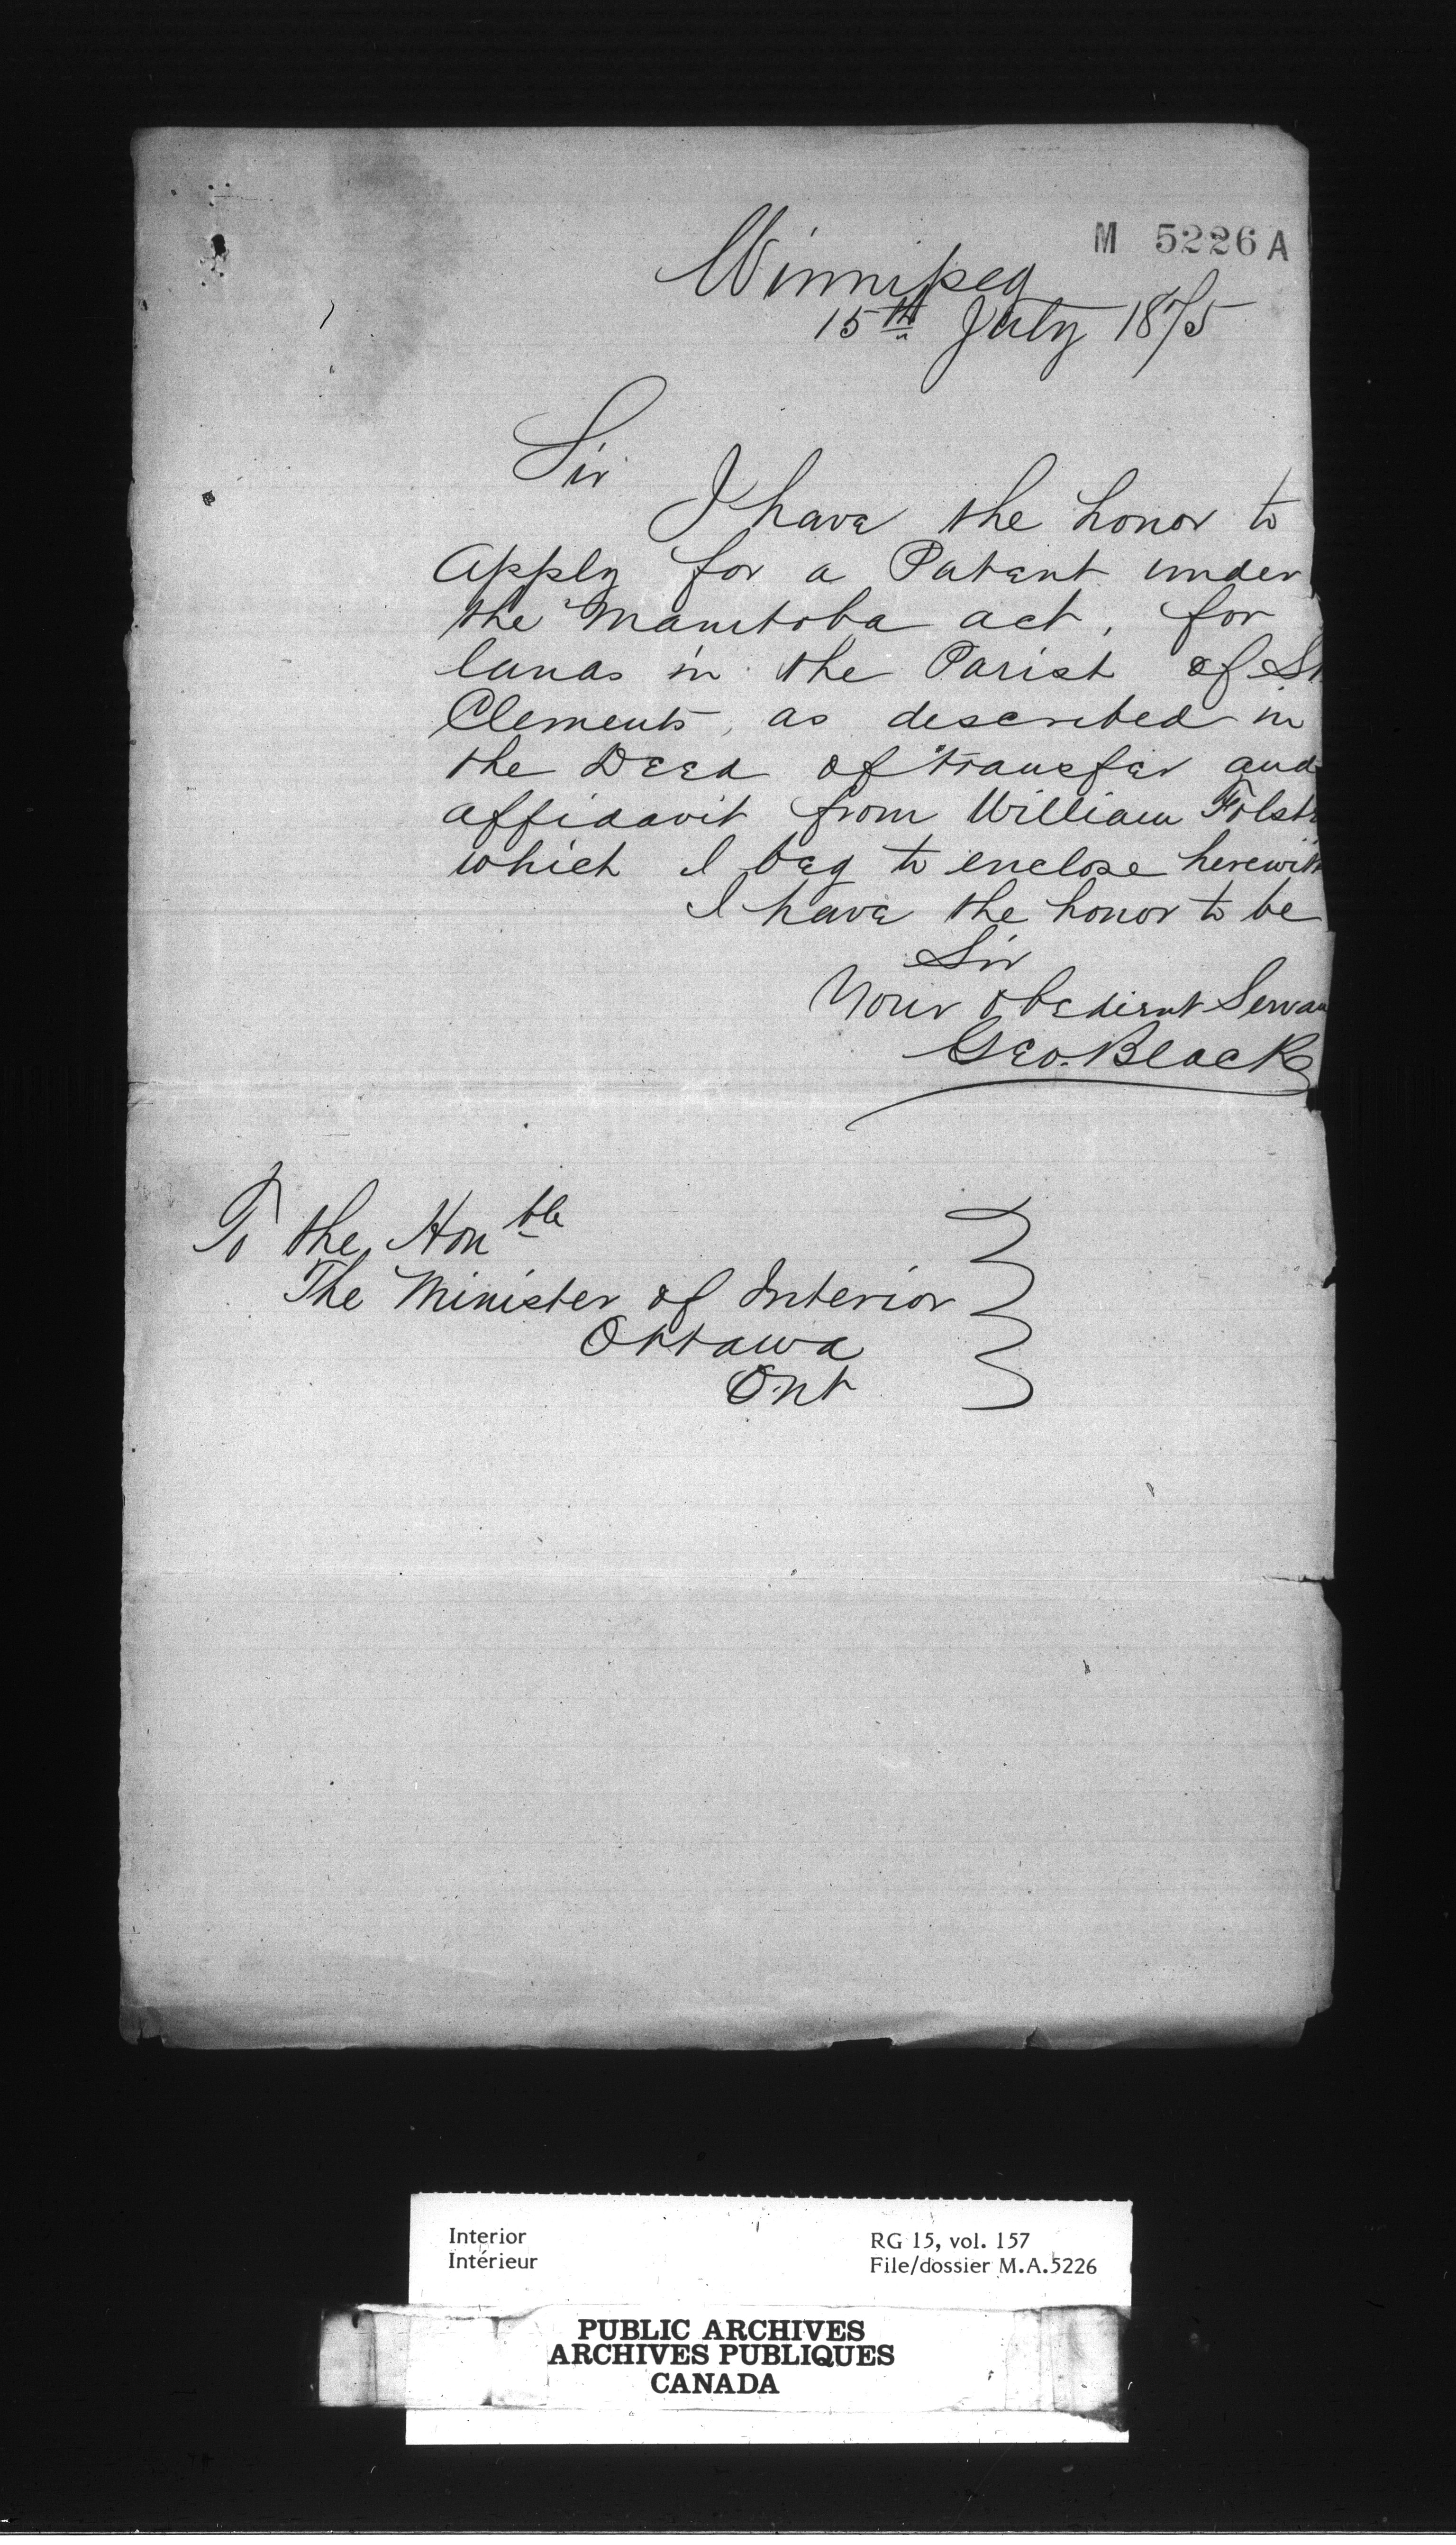 M 5226 A
Winnipeg
15th July 1875
Sir
I have the honor to
apply for a Patent under
the Manitoba act, for
lands in the Parish of St
Clements, as described in
the Deed of transfer and
affidavit from William
which I beg to enclose herewith
I have the honor to be
Sir
Your obedient Servan
Geo. Black
To the Honble
The Minister of Interior
Ottawa
Ont
Interior
Intérieur
RG 15, vol. 157
File/dossier M.A.5226
PUBLIC ARCHIVES
ARCHIVES PUBLIQUES
CANADA